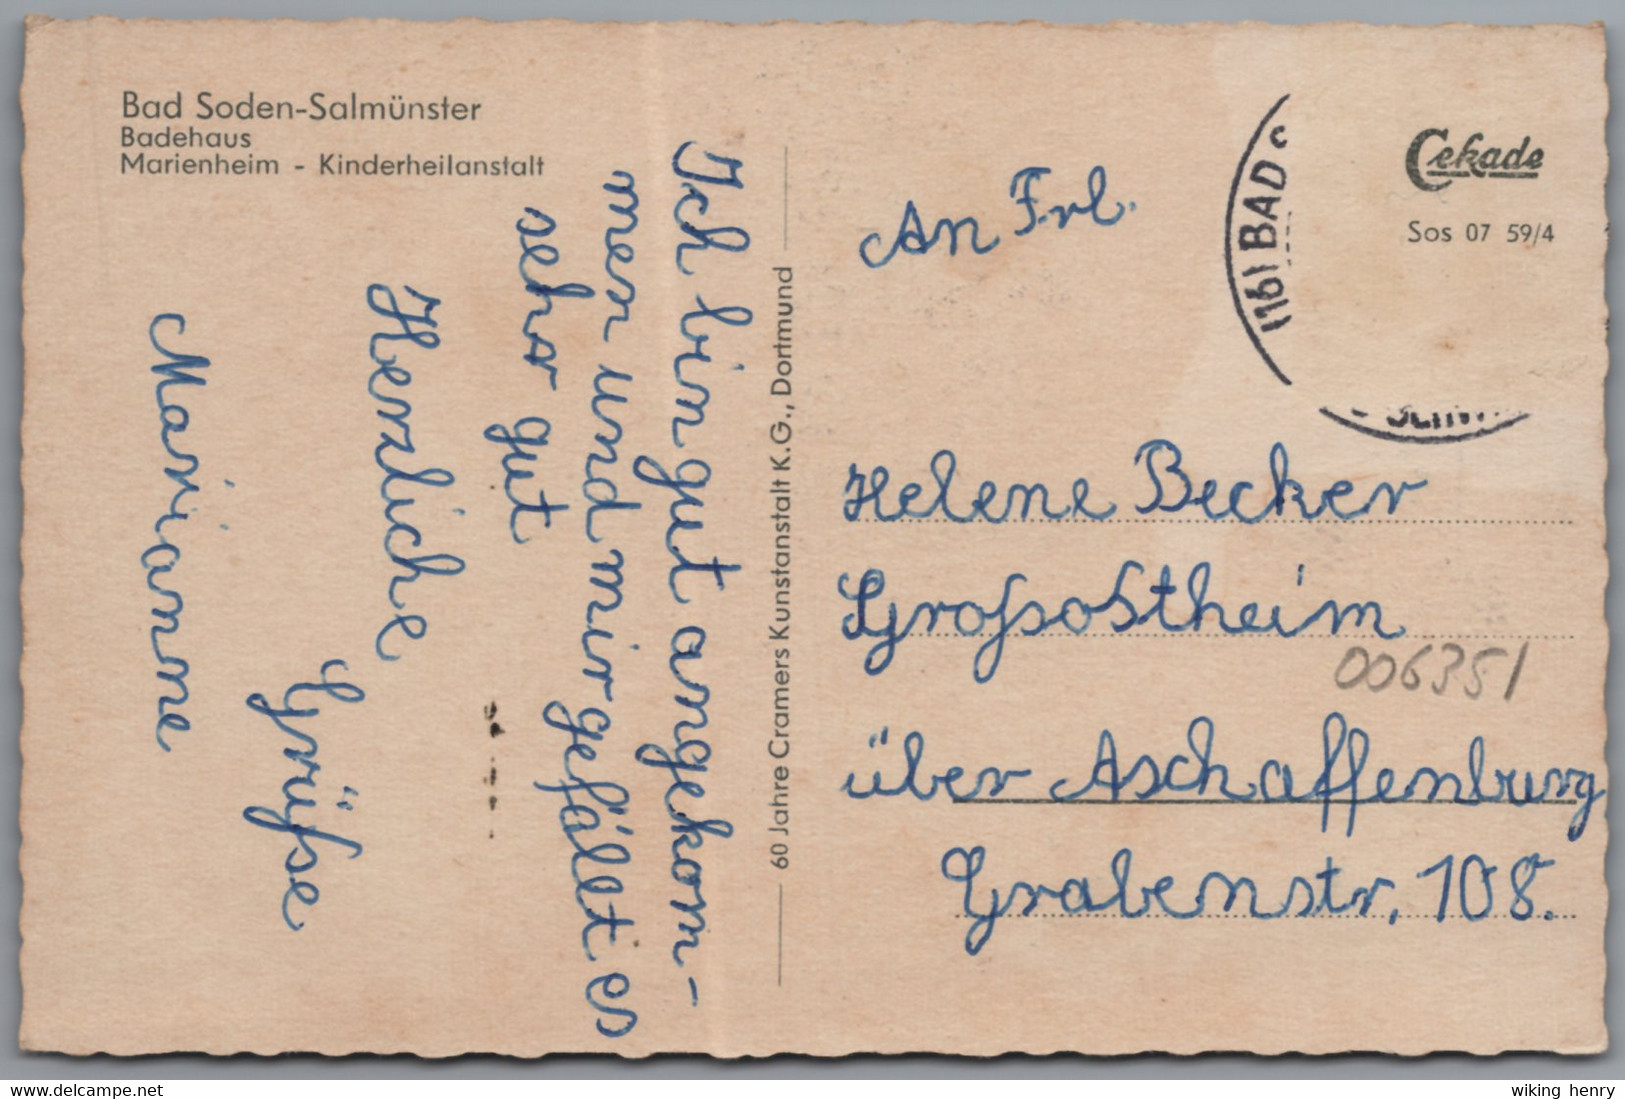 Bad Soden-Salmünster
Badehaus
Marienheim - Kinderheilanstalt
Ich bin gut angekom-
men und mir gefällt es
sehr gut
Herzliche
Grüße
Marianne
60 Jahre Cramers Kunstanstalt K.G., Dortmund
Cekade
Sos 07 59/4
BAD
An Frl.
Helene Becker
Großostheim
006351
über Aschaffenburg
Grabenstr. 108.
delcampe.net
wiking henry